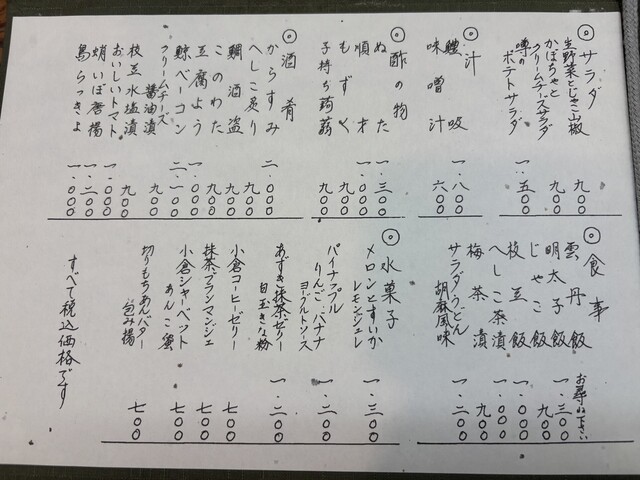 ◎サラダ
生野菜とじゃこ山椒 九〇〇
かぼちゃと
クリームチーズサラダ 九〇〇
噂の
ポテトサラダ 一.五〇〇
◎汁
鱧吸 一.八〇〇
味噌汁 六〇〇
◎酢の物
ぬた 一.三〇〇
順才 一.〇〇〇
もずく 九〇〇
子持ち蒟蒻 九〇〇
◎酒肴
からすみ 二.〇〇〇
へしこ炙り 九〇〇
鯛酒盗 九〇〇
このわた 九〇〇
豆腐よう 一.〇〇〇
鯨ベーコン 二.一〇〇
クリームチーズ
醤油漬 九〇〇
枝豆水塩漬 九〇〇
おいしいトマト 一.〇〇〇
蛸いぼ唐揚 一.二〇〇
島らっきょ 一.〇〇〇
◎食事
雲丹飯 お尋ね下さい
明太子飯 一.三〇〇
じゃこ飯 九〇〇
枝豆飯 一.〇〇〇
へしこ茶漬 一.〇〇〇
梅茶漬 九〇〇
サラダうどん
胡麻風味 一.二〇〇
◎水菓子
メロンとすいか
レモンジュレ 一.三〇〇
パイナップル
りんご・バナナ
ヨーグルトソース 一.二〇〇
あずき抹茶ゼリー
白玉きな粉 一.二〇〇
小倉コーヒーゼリー 七〇〇
抹茶ブランマンジェ 七〇〇
小倉シャーベット
あんこ蜜 七〇〇
切りもちあんバター
包み揚 七〇〇
すべて税込価格です